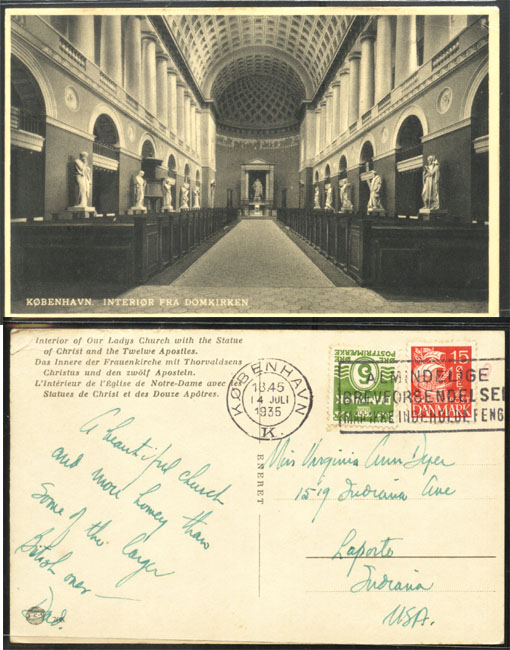 KØBENHAVN. INTERIØR FRA DOMKIRKEN
Interiør of Our Ladys Church with the Statue
of Christ and the Twelwe Apostles.
Das Innere der Frauenkirche mit Thorvaldsens
Christus und den zwölf Aposteln.
L'Intérieur de l'Eglise de Notre-Dame avec
Statues de Christ et des Douze Apôtres.
KØBENHAVN
18.45
14 JULI
1935
K.
ØRE
5
ØRE
POSTFRIM
15
DANMARK
ALMINDELIGE
BREVFORSENDELSER
MAA IKKE INDEHOLDE PENGE
A beautiful church
and more homey than
some of the larger
British ones —
Dad.
ENERET
Miss Virginia Ann Dyer
1519 Indiana Ave
Laporte
Indiana
USA.